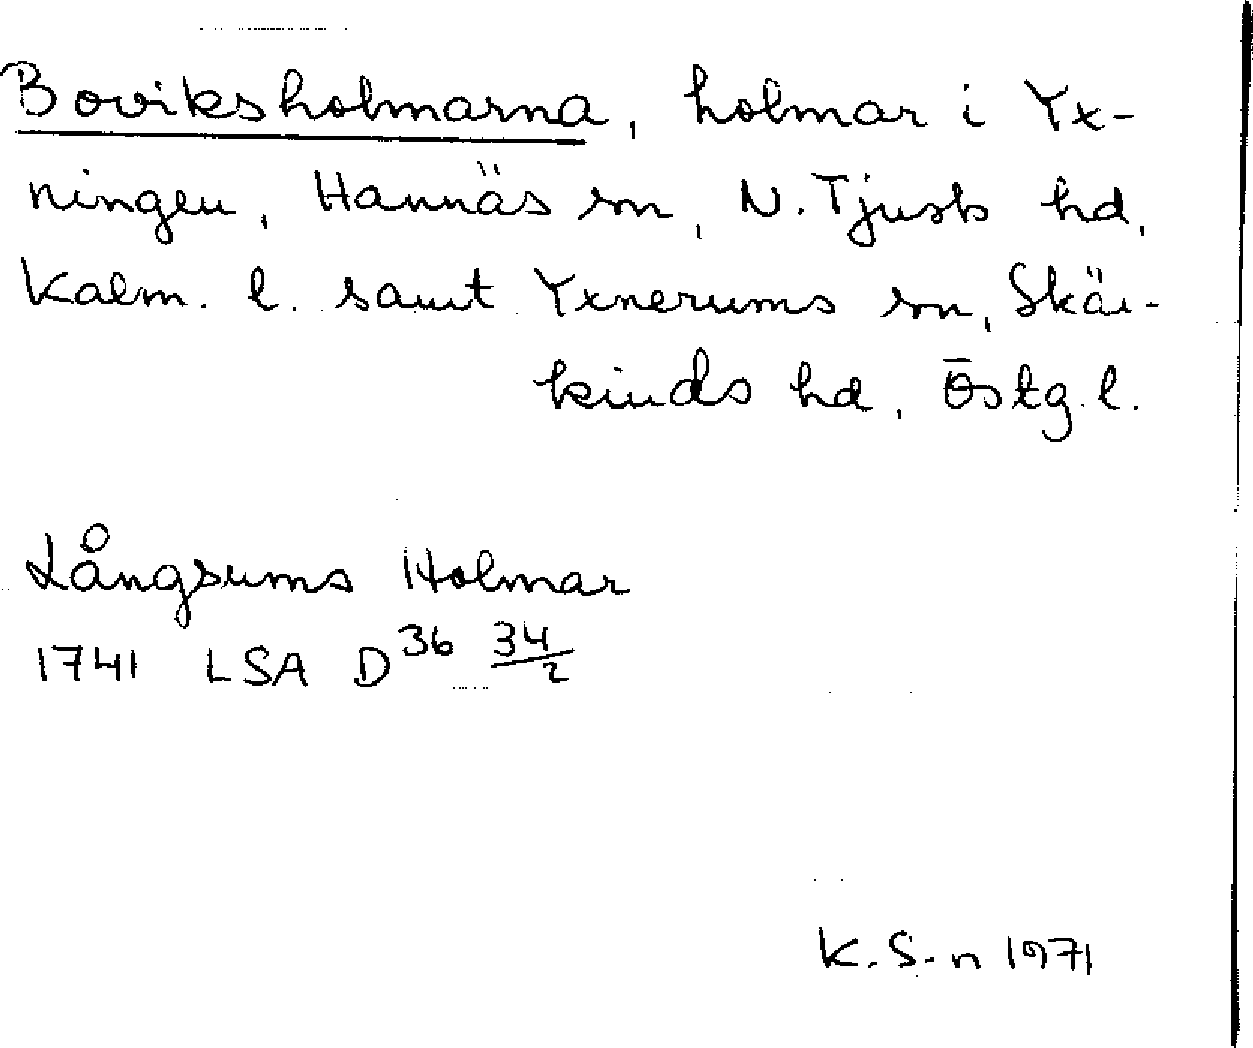 Boviksholmarna, holmar i Yx-
ningen, Hannäs sn, N. Tjusts hd,
Kalm. l. samt Yxnerums sn, Skär-
kinds hd, Östg. l.
Långsums Holmar
1741 LSA D 36 34/2
K. S-n 1971